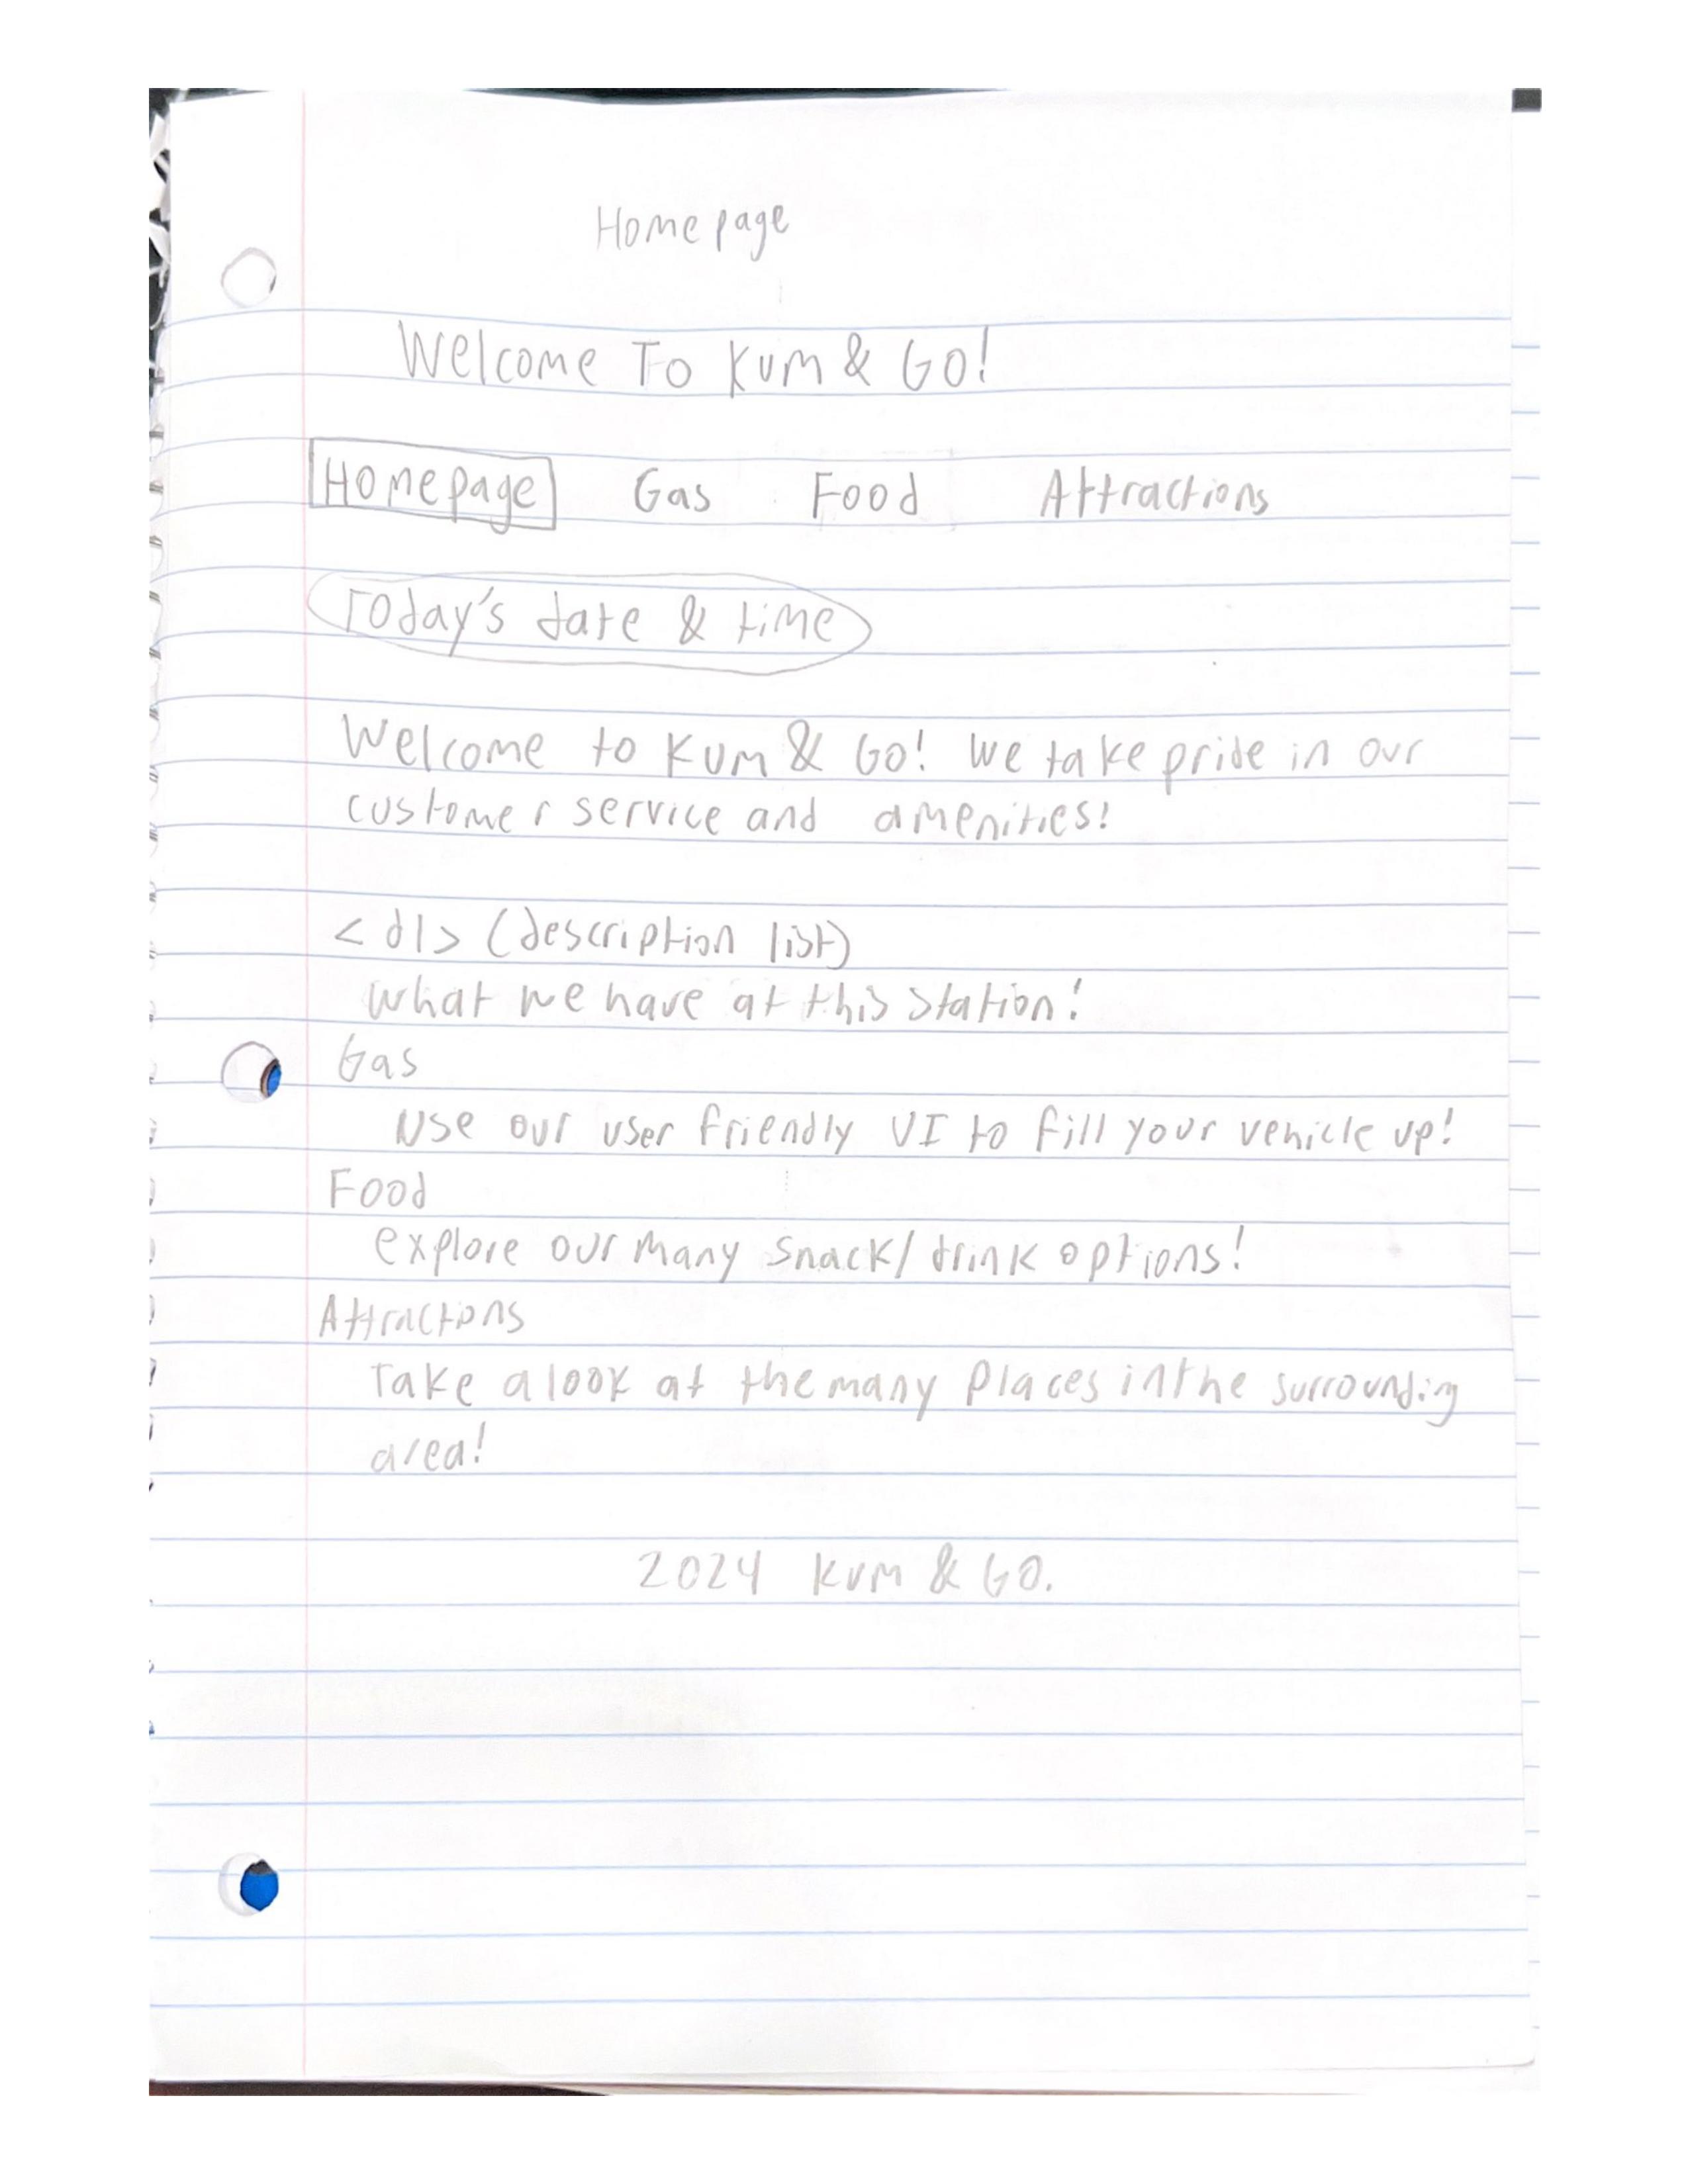 Homepage
Welcome To Kum & Go!
Homepage Gas Food Attractions
Today's date & time
Welcome to Kum & Go! We take pride in our
customer service and amenities!
<dl> (description list)
What we have at this station!
Gas
Use our user friendly UI to fill your vehicle up!
Food
explore our many snack/drink options!
Attractions
Take a look at the many places in the surrounding
area!
2024 Kum & Go.